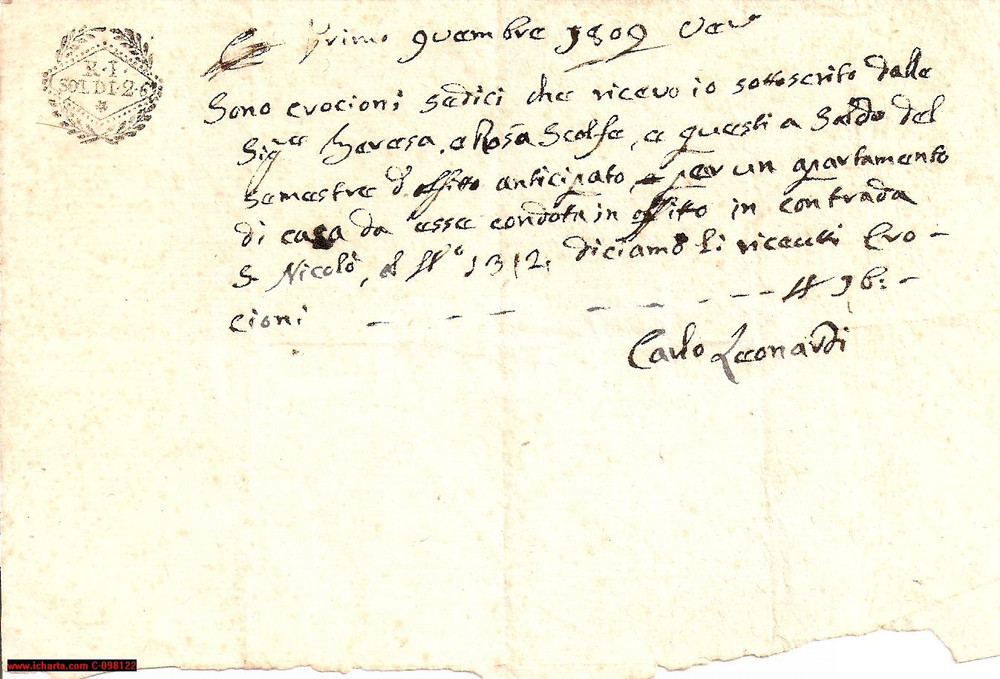 R. I.
SOLDI. 2. 6
Primo 9vembre 1809 Ver
Sono crocioni sedici che ricevo io sottoscrito dalle
Sig.re Teresa, e Rosa Scolfe, e questi a Saldo del
semestre d'affitto anticipato, e per un apartamento
di casa da esse condota in affitto in contrada
S. Nicolò, al N.o 1312, diciamo li riceuti Cro-
cioni - - - - - - - - N 16: -
Carlo Leonardi
www.icharta.com C-098122